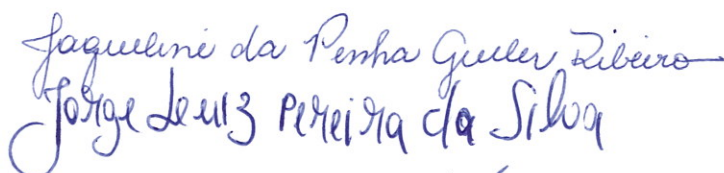 Jaqueline da Penha Guller Ribeiro
Jorge Leuiz Pereira da Silva